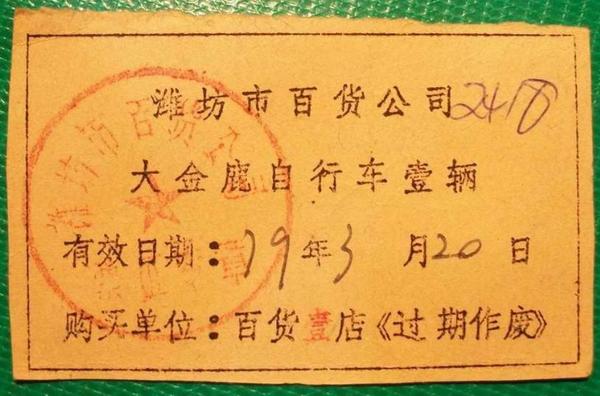 潍坊市百货公司 2418
大金鹿自行车壹辆
有效日期：79年3月20日
购买单位：百货壹店《过期作废》
潍坊市百货公司